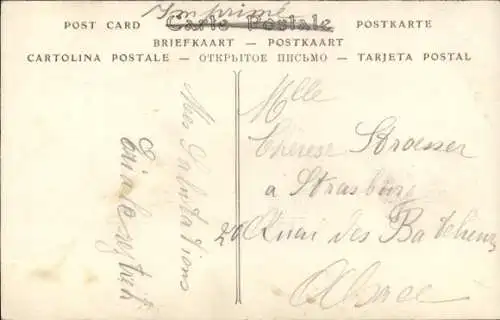 Imprimé
POST CARD Carte Postale POSTKARTE
BRIEFKAART — POSTKAART
CARTOLINA POSTALE — ОТКРЫТОЕ ПИСЬМО — TARJETA POSTAL
Mes Salutations
Mlle
Thérèse Strosser
à Strasburg
20 Quai des Bateliers
Alsace